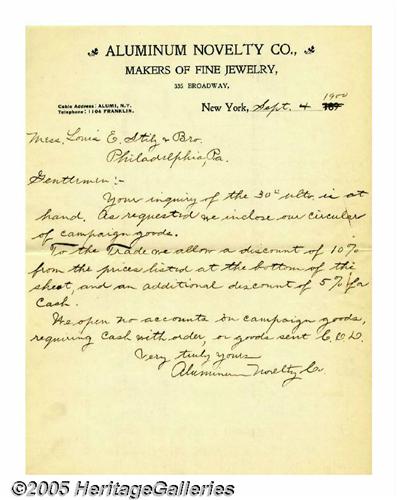 ALUMINUM NOVELTY CO.,
MAKERS OF FINE JEWELRY,
335 BROADWAY,
Cable Address: ALUMI, N.Y.
Telephone: 1104 FRANKLIN.
New York, Sept. 4 1900
Mess. Louis E. Stilz & Bro.
Philadelphia, Pa.
Gentlemen:-
Your inquiry of the 30th ulto, is at
hand. As requested we inclose our circular
of campaign goods.
To the Trade we allow a discount of 10%
from the prices listed at the bottom of the
sheet, and an additional discount of 5% for
cash.
We open no accounts on campaign goods,
requiring cash with order, or goods sent C.O.D.
Very truly yours
Aluminum Novelty Co.
©2005 HeritageGalleries